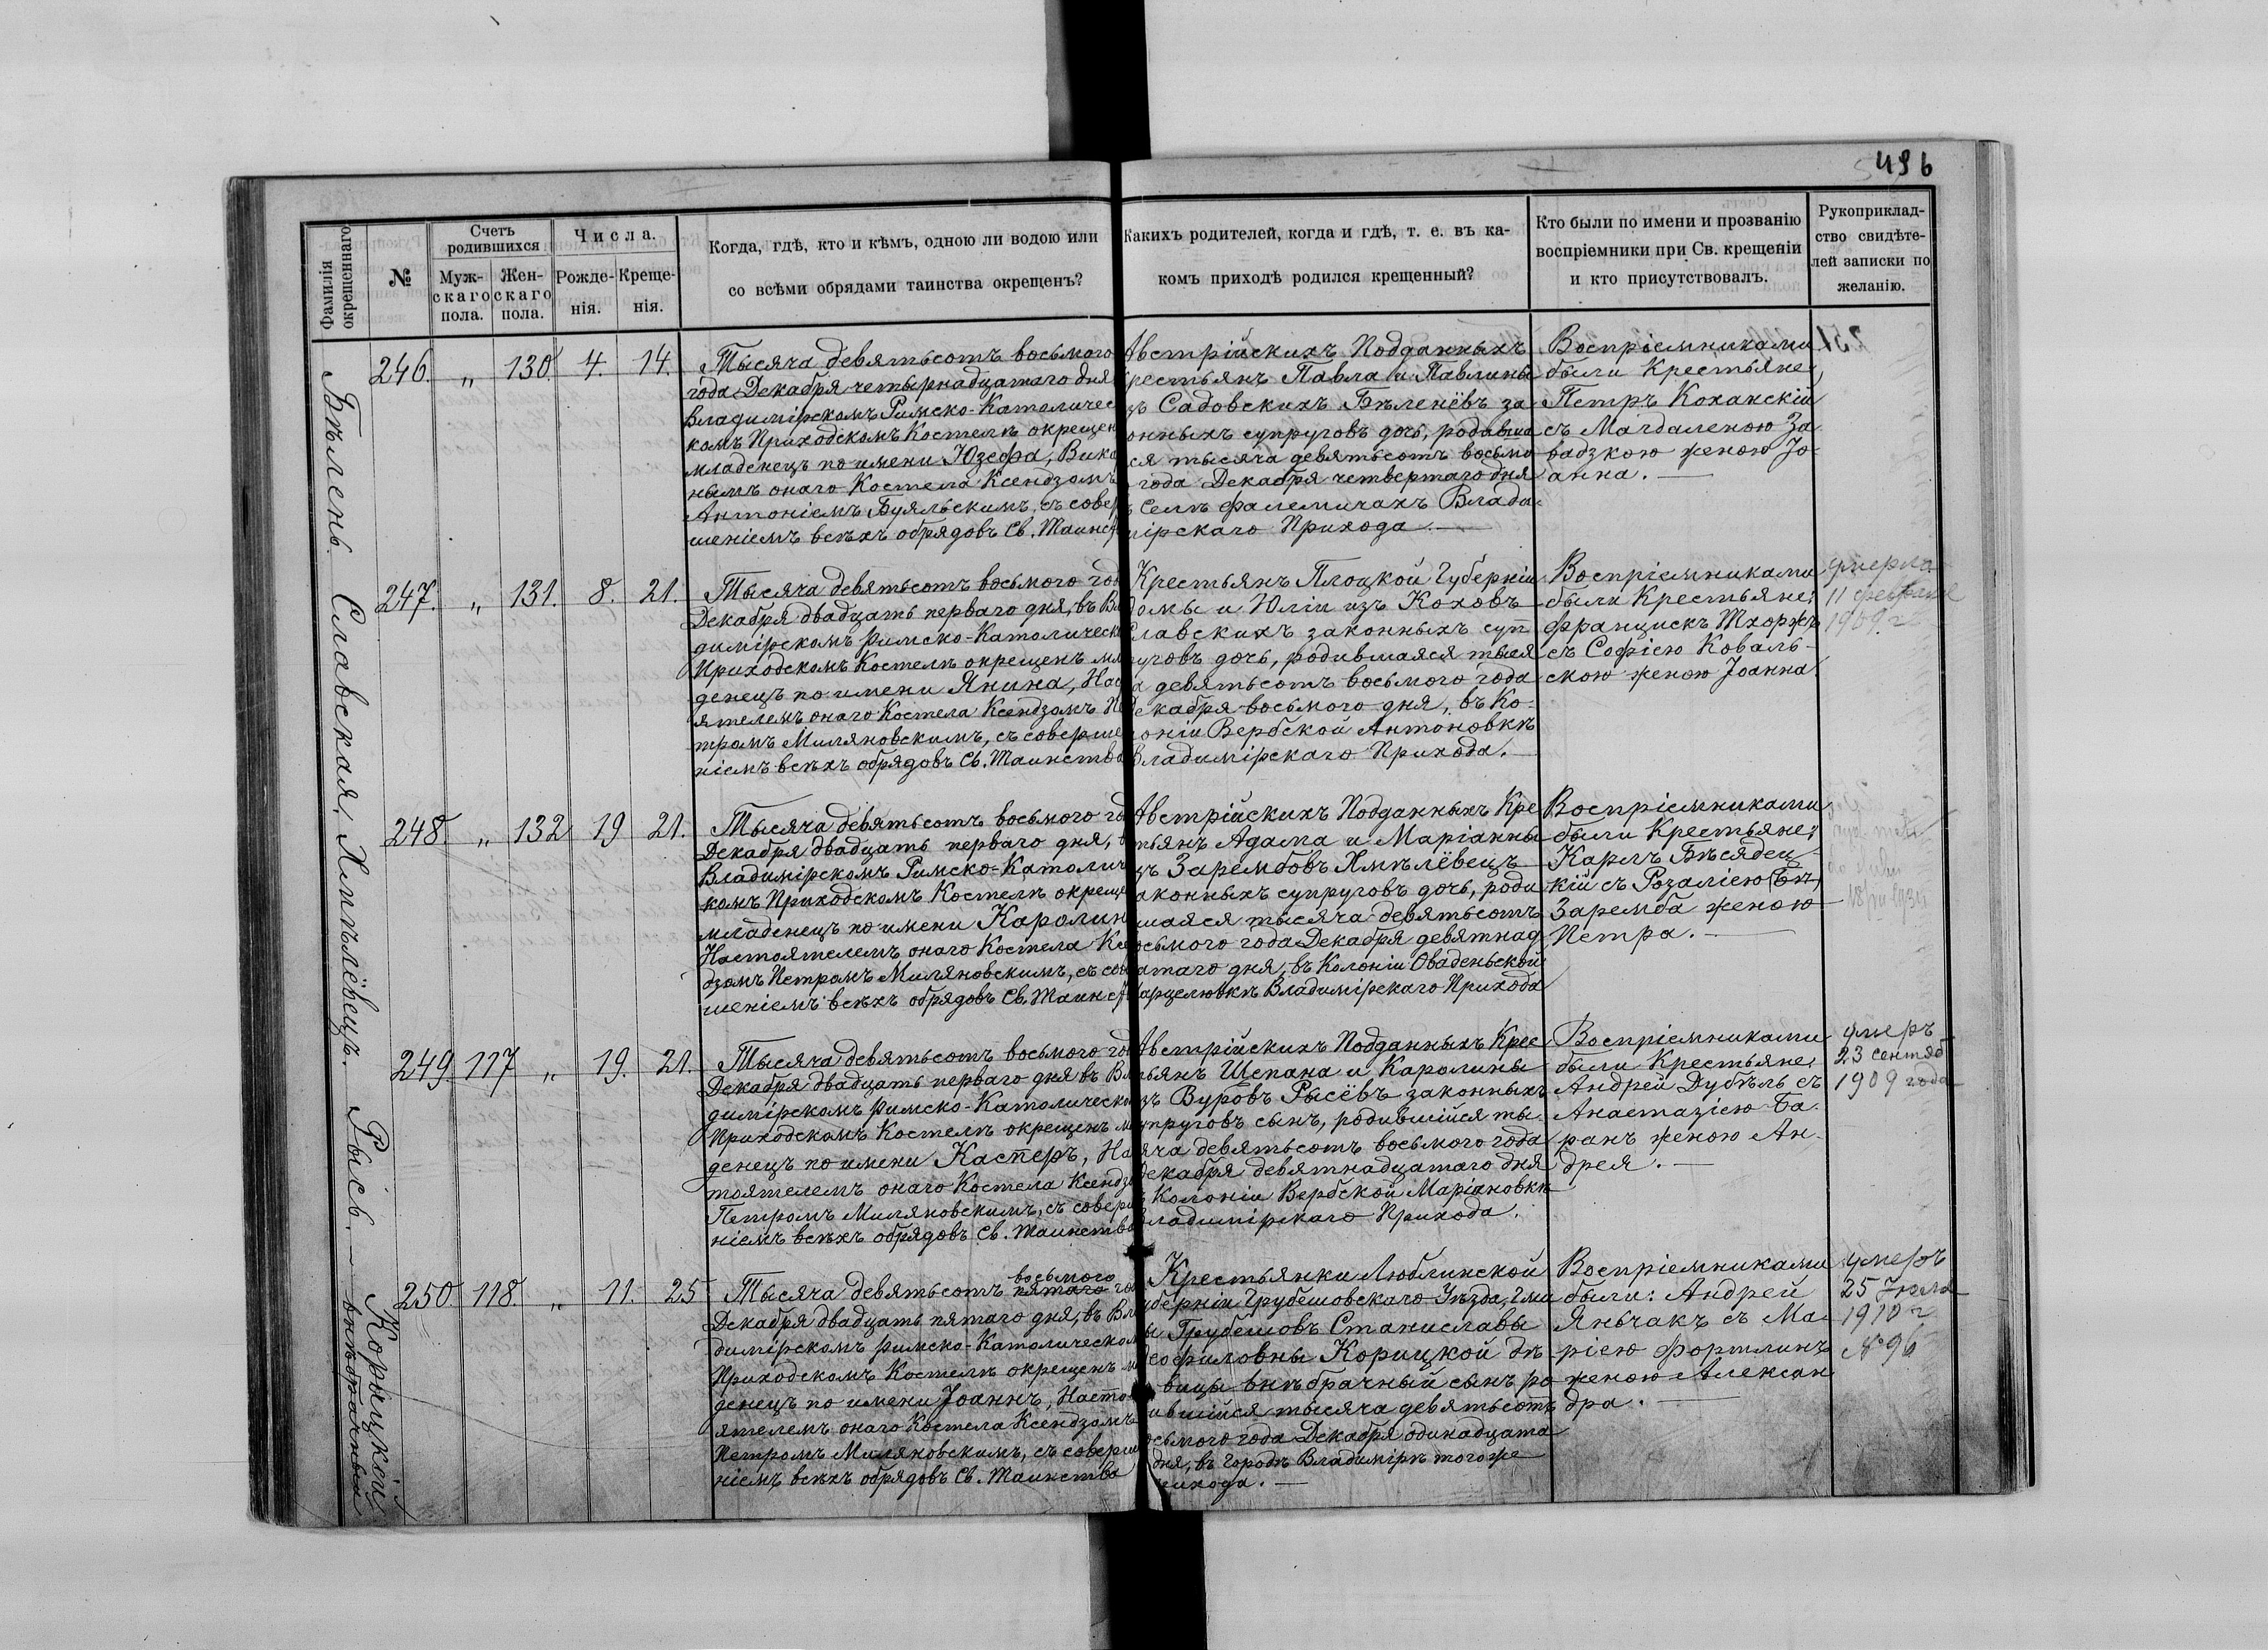 496
Фамилія окрещеннаго
№
Счетъ родившихся
Муж-скаго пола.
Жен-скаго пола.
Числа.
Рожде-нія.
Креще-нія.
Когда, гдѣ, кто и кѣмъ, одною ли водою или
со всѣми обрядами таинства окрещенъ?
Какихъ родителей, когда и гдѣ, т. е. въ ка-
комъ приходѣ родился крещенный?
Кто были по имени и прозванію
воспріемники при Св. крещеніи
и кто присутствовалъ.
Рукоприклад-
ство свидѣте-
лей записки по
желанію.
Бѣлень.
246. „ 130. 4. 14.
Тысяча девятьсотъ восьмого
года Декабря четырнадцатаго дня
Владимірскомъ Римско-Католичес
комъ Приходскомъ Костелѣ окрещен
младенецъ по имени Юзефа, Вика
нымъ онаго Костела Ксендзомъ
Антоніемъ Буяльскимъ, съ совер
шеніемъ всѣхъ обрядовъ Св. Таинст
Австрійскихъ Подданныхъ
рестьянъ Павла и Павлины
зъ Садовскихъ Бѣленёвъ за
онныхъ супруговъ дочь, родивша
ся тысяча девятьсотъ восьмо
года Декабря четвертаго дня
Селѣ Фалемичахъ Влади-
мірскаго Прихода.
Воспріемниками
были Крестьяне,
Петръ Коханскій
съ Магдаленою За-
вадзкою женою Іо-
анна.
Славская,
247. „ 131. 8. 21.
Тысяча девятьсотъ восьмого год
Декабря двадцать перваго дня, въ Вла
димірскомъ Римско-Католическо
Приходскомъ Костелѣ окрещенъ мла
денецъ по имени Янина, Нас
ятелемъ онаго Костела Ксендзомъ Пе
тромъ Миляновскимъ, съ соверше
ніемъ всѣхъ обрядовъ Св. Таинства
Крестьянъ Плоцкой Губерніи
омы и Юліи изъ Коховъ
Славскихъ законныхъ суп
уговъ дочь, родившаяся тыся
а девятьсотъ восьмого года
Декабря восьмого дня, въ Ко-
оніи Вербской Антоновкѣ
Владимірскаго Прихода.
Воспріемниками
были Крестьяне:
Францискъ Тхоржъ
съ Софіею Коваль-
скою женою Іоанна
умерла
11 февраля
1909 г
Хмѣлёвецъ.
248. „ 132 19 21.
Тысяча девятьсотъ восьмого го
Декабря двадцать перваго дня,
Владимірскомъ Римско-Католич
комъ Приходскомъ Костелѣ окреще
младенецъ по имени Каролин
Настоятелемъ онаго Костела Ксе
дзомъ Петромъ Миляновскимъ, съ сов
шеніемъ всѣхъ обрядовъ Св. Таинст
Австрійскихъ Подданныхъ Кре
тьянъ Адама и Маріанны
зъ Зарембовъ Хмѣлёвецъ
аконныхъ супруговъ дочь, роди
шаяся тысяча девятьсотъ
осьмого года Декабря девятнад
атаго дня, въ Колоніи Оваденьской
арцелювкѣ Владимірскаго Прихода
Воспріемниками
были Крестьяне:
Карлъ Бѣсядец-
кій съ Розаліею
Заремба женою
Петра.
Рысь.
249 117 „ 19. 21.
Тысяча девятьсотъ восьмого го
Декабря двадцать перваго дня въ Вла
димірскомъ Римско-Католическо
Приходскомъ Костелѣ окрещенъ м
денецъ по имени Касперъ, На
тоятелемъ онаго Костела Ксендзо
Петромъ Миляновскимъ, съ совер
ніемъ всѣхъ обрядовъ Св. Таинства
Австрійскихъ Подданныхъ Крес
тьянъ Щепана и Каролины
зъ Вуровъ Рысёвъ законныхъ
упруговъ сынъ, родившійся ты-
яча девятьсотъ восьмого года
Декабря девятнадцатаго дня
Колоніи Вербской Маріановкѣ
Владимірскаго Прихода.
Воспріемниками
были Крестьяне:
Андрей Дубѣль съ
Анастазіею Ба-
ранъ женою Ан-
дрея.
умеръ
23 сентяб
1909 года
Корыцкій внѣбрачный
250. 118. „ 11. 25
восьмого
Тысяча девятьсотъ пятаго го
Декабря двадцать пятаго дня, въ Вла
димірскомъ Римско-Католическом
Приходскомъ Костелѣ окрещенъ м
денецъ по имени Іоаннъ, Насто
ятелемъ онаго Костела Ксендзомъ
Петромъ Миляновскимъ, съ соверш
ніемъ всѣхъ обрядовъ Св. Таинства
Крестьянки Люблинской
уберніи Грубешовскаго Уѣзда, Гми
ы Грубешовъ Станиславы
еофиловны Корицкой дѣ-
вицы внѣбрачный сынъ ро
ившійся тысяча девятьсотъ
осьмого года Декабря одинадцата
дня, въ городѣ Владимірѣ тогоже
рихода.
Воспріемниками
были: Андрей
Яньчакъ съ Ма-
ріею Фортлинъ
женою Алексан
дра.
умеръ
25 Іюля
1910 г
№ 96